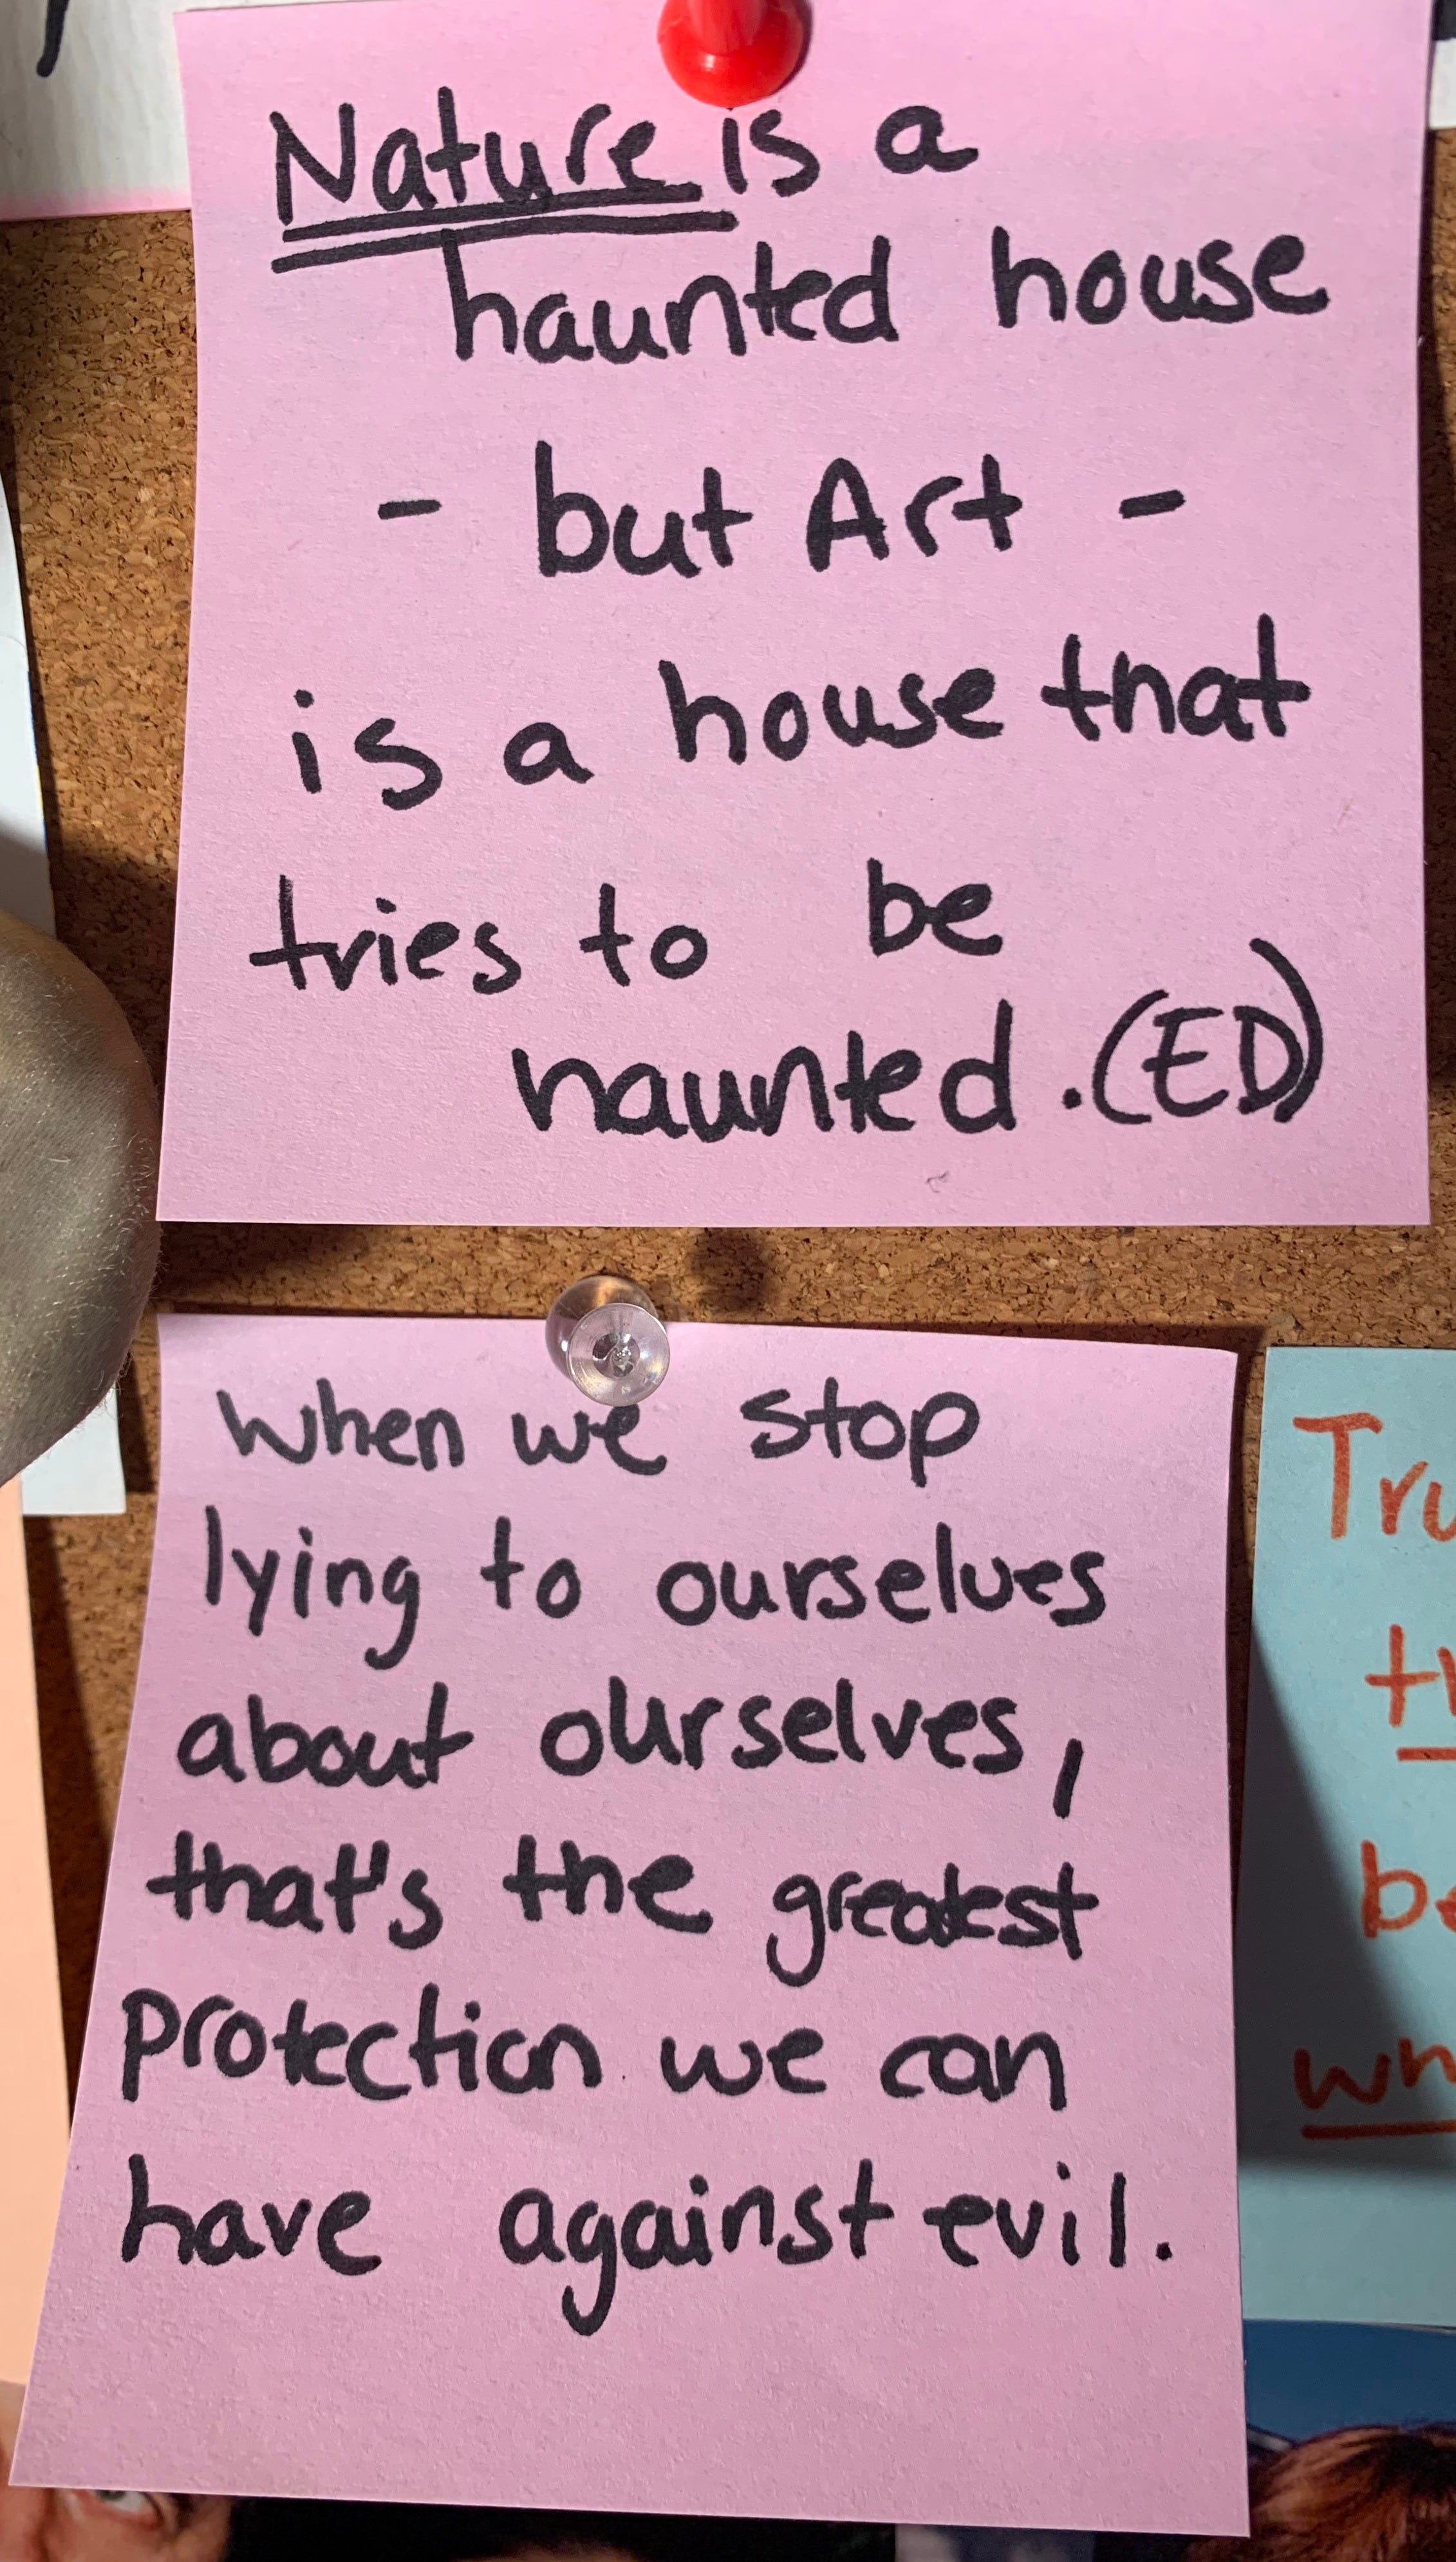 Nature is a
haunted house
- but Art -
is a house that
tries to be
haunted. (ED)
When we stop
lying to ourselves
about ourselves,
that's the greatest
protection we can
have against evil.